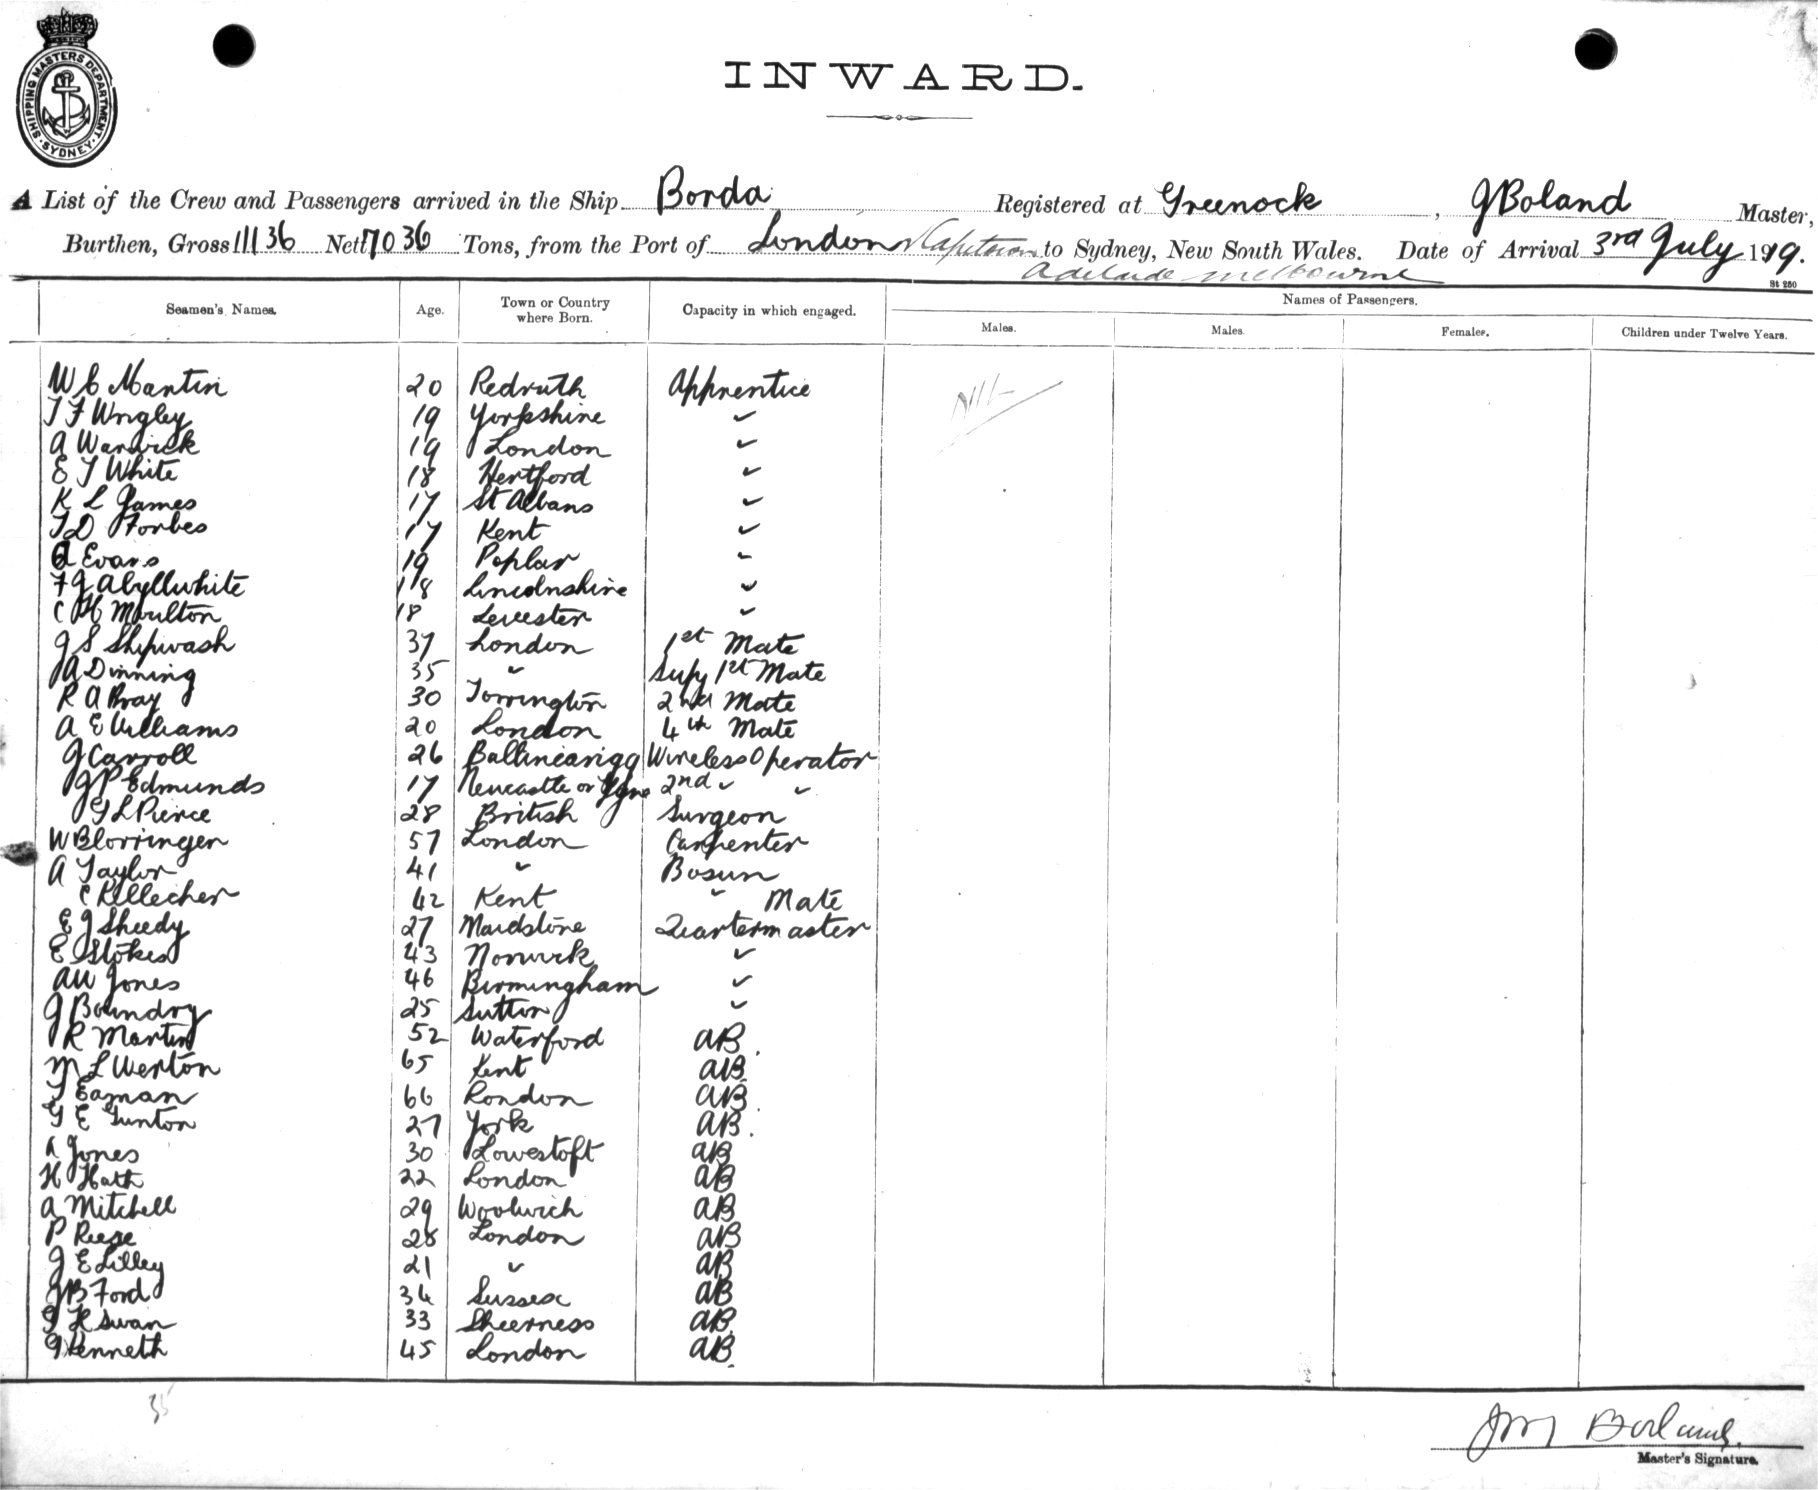 SHIPPING MASTERS DEPARTMENT
SYDNEY
INWARD.
A List of the Crew and Passengers arrived in the Ship Borda Registered at Greenock, J Boland Master,
Burthen, Gross 11136 Nett 7036 Tons, from the Port of London Capetown to Sydney, New South Wales. Date of Arrival 3rd July 1919.
Adelaide Melbourne
St 250
Seamen's Names. Age. Town or Country where Born. Capacity in which engaged. Names of Passengers.
Males. Males. Females. Children under Twelve Years.
W C Martin 20 Redruth Apprentice Nil
T F Wrigley 19 Yorkshire "
A Warwick 19 London "
E T White 18 Hertford "
K L James 17 St Albans "
T D Forbes 17 Kent "
A Evans 19 Poplar "
F J Abyllwhite 18 Lincolnshire "
C H Moulton 18 Leicester "
J S Shipwash 37 London 1st Mate
A Dinning 35 " Supy 1st Mate
R A Bray 30 Torrington 2nd Mate
A E Williams 20 London 4th Mate
J Carroll 26 Wireless Operator
J P Edmunds 17 Newcastle on Tyne 2nd " "
G L Pierce 28 British Surgeon
W Blorringer 57 London Carpenter
A Taylor 41 " Bosun
C Kellecher 42 Kent " Mate
E J Sheedy 27 Maidstone Quartermaster
E Stokes 43 Norwick "
AW Jones 46 Birmingham "
J Boundry 25 Sutton "
R Martin 52 Waterford AB.
M L Werton 65 Kent AB.
T Eaman 66 London AB.
G E Gunton 27 York AB.
A Jones 30 Lowestoft AB
H Hath 22 London AB
A Mitchell 29 Woolwich AB
P Reese 28 London AB
J E Lilley 21 " AB
J B Ford 34 Sussex AB
G H Swan 33 Sheerness AB.
J Kenneth 45 London AB.
35
Master's Signature.